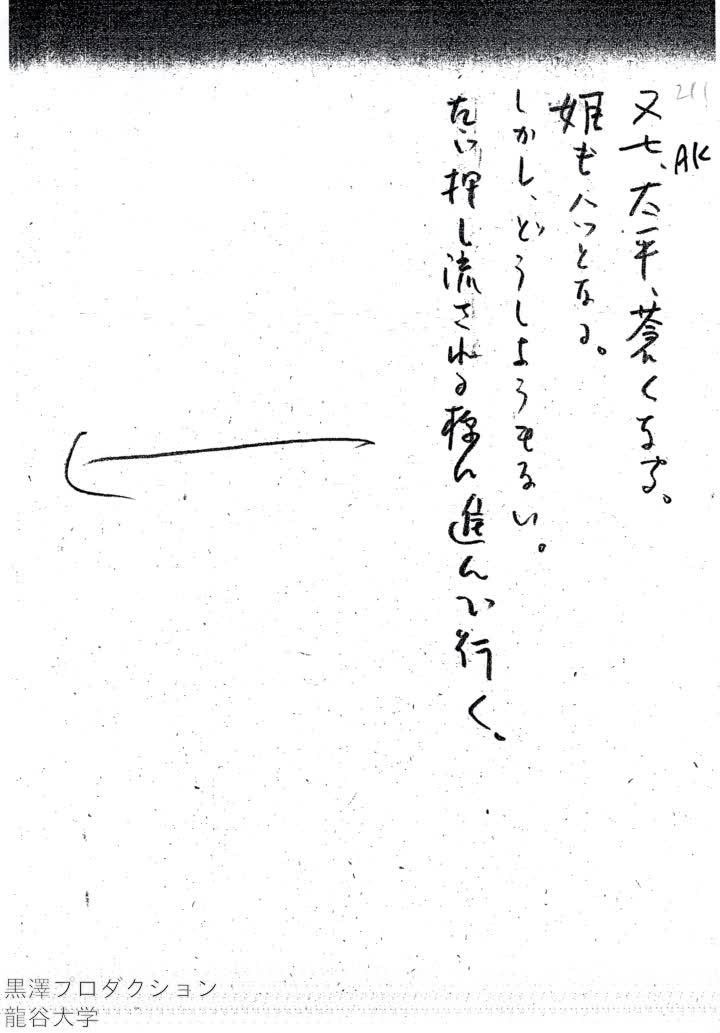 211
AK
又七、太平、蒼くなる。
姫もハッとなる。
しかし、どうしようもない。
たゞ押し流される様に進んで行く。
黒澤プロダクション
龍谷大学